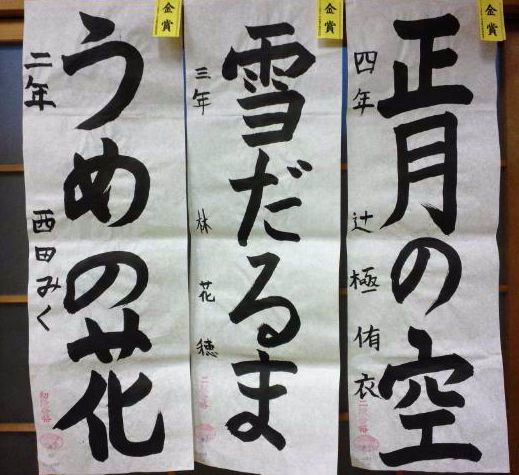 金賞
正月の空
四年 辻極侑衣
金賞
雪だるま
三年 林花穂
金賞
うめの花
二年 西田みく